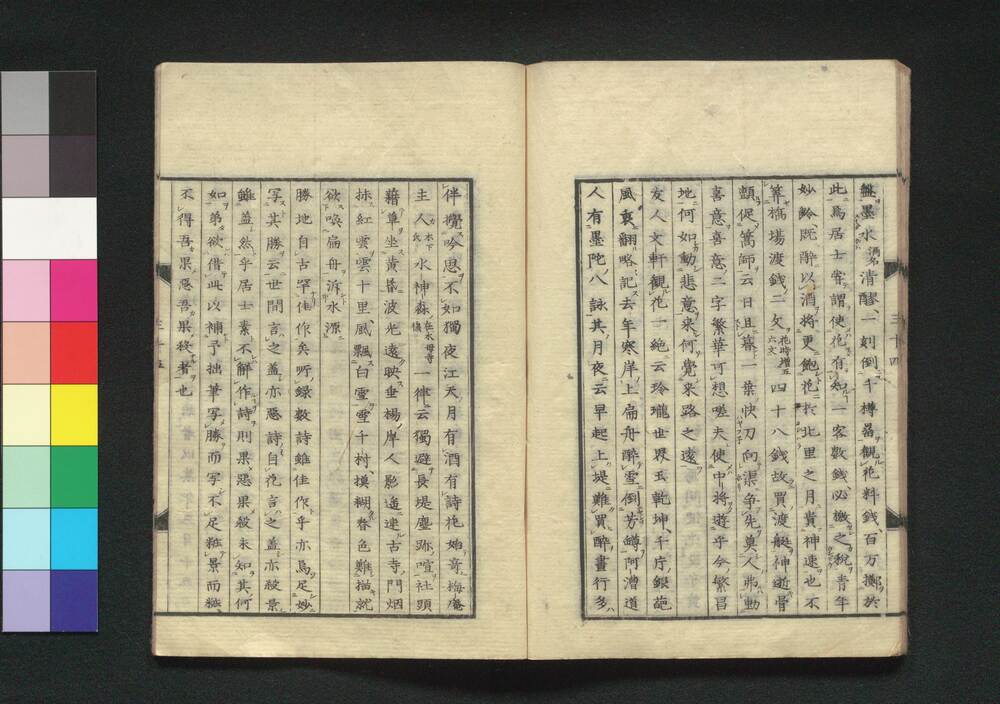 盤墨水酒名清醪、一刻倒千樽、当観花料銭、百万擲於
此、為居士客謂使花有知、一客数銭必檄之税、青年
妙齢既酔以酒将更飽花於北里之月貴神速也不
竹橋場渡銭二文花時増五六文四十八銭故買渡艇神逝骨
顫促篙師云日且暮一葉快刀向渠争先莫人弗動
喜意喜意二字繁華可想嗟夫使中将遊乎今繁昌
地何如動悲意来何覚来路之遠
友人文軒観花一絶云玲瓏世界玉乾坤千斤銀葩
風裏翻略記去年寒岸上扁舟酔雪倒芳罇阿漕道
人有墨陀八詠其月夜云早起上堤難買酔昼行多
伴攪吟思不如独夜江天月有酒有詩花始奇梅塵
主人水下氏水神森在木母寺傍一律云独避長堤塵跡喧社頭
藉草坐黄昏波光遠映垂楊岸人影遥連古寺門烟
抹紅雲雲十里風飄白雪雪千村模糊春色難描就
欲喚扁舟泝水源
勝地自古罕佳作矣所録数詩雖佳作乎亦為足妙
写其勝云世間言之蓋亦悪詩自花言之蓋亦殺景
雖蓋然乎居士素不解作詩則果悪果殺未知其何
如弟欲借此以補予拙筆写勝而写不足粧景而粧
不得吾果悪吾果殺者也
三十四
三十五